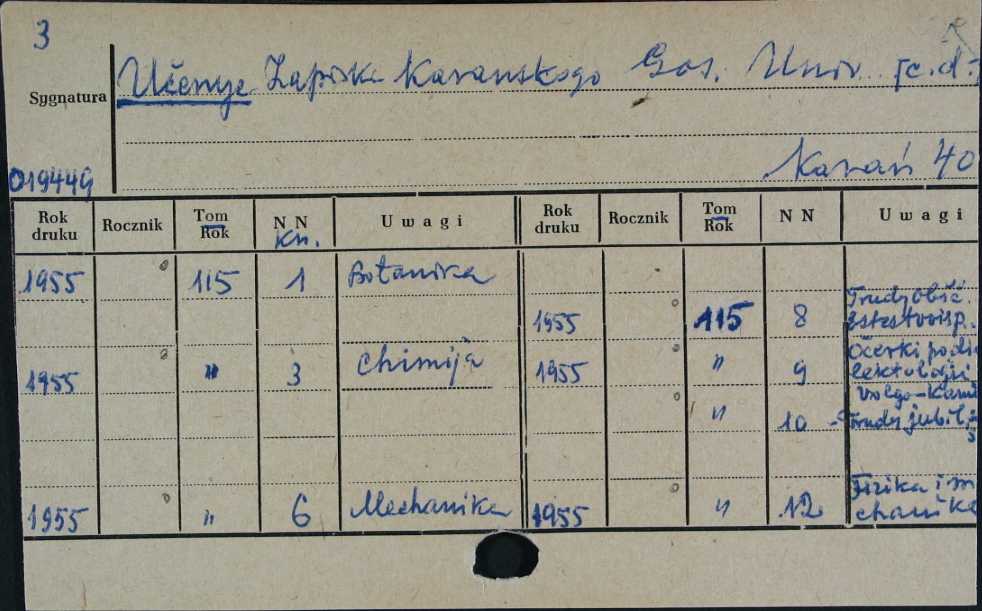 3
Sygnatura
Učenye Zapiski Kazanskogo Gos. Univ. [c.d.
Kazań 40
019449
Rok druku Rocznik Tom Rok N N Kn. Uwagi Rok druku Rocznik Tom Rok N N Uwagi
1955 115 1 Botanika
1955 115 8 Trudy Obšč. Estestvoisp.
1955 " 3 Chimija 1955 " 9 Očerki po di lektologii Volgo-Kam
" 10 Trudy jubil.
1955 " 6 Mechanika 1955 " 12 Fizika i me chanika